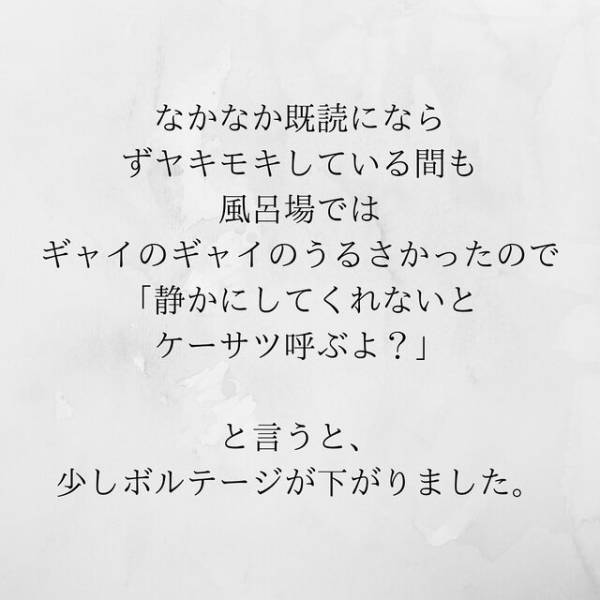 なかなか既読になら
ずヤキモキしている間も
風呂場では
ギャイのギャイのうるさかったので
「静かにしてくれないと
ケーサツ呼ぶよ？」
と言うと、
少しボルテージが下がりました。